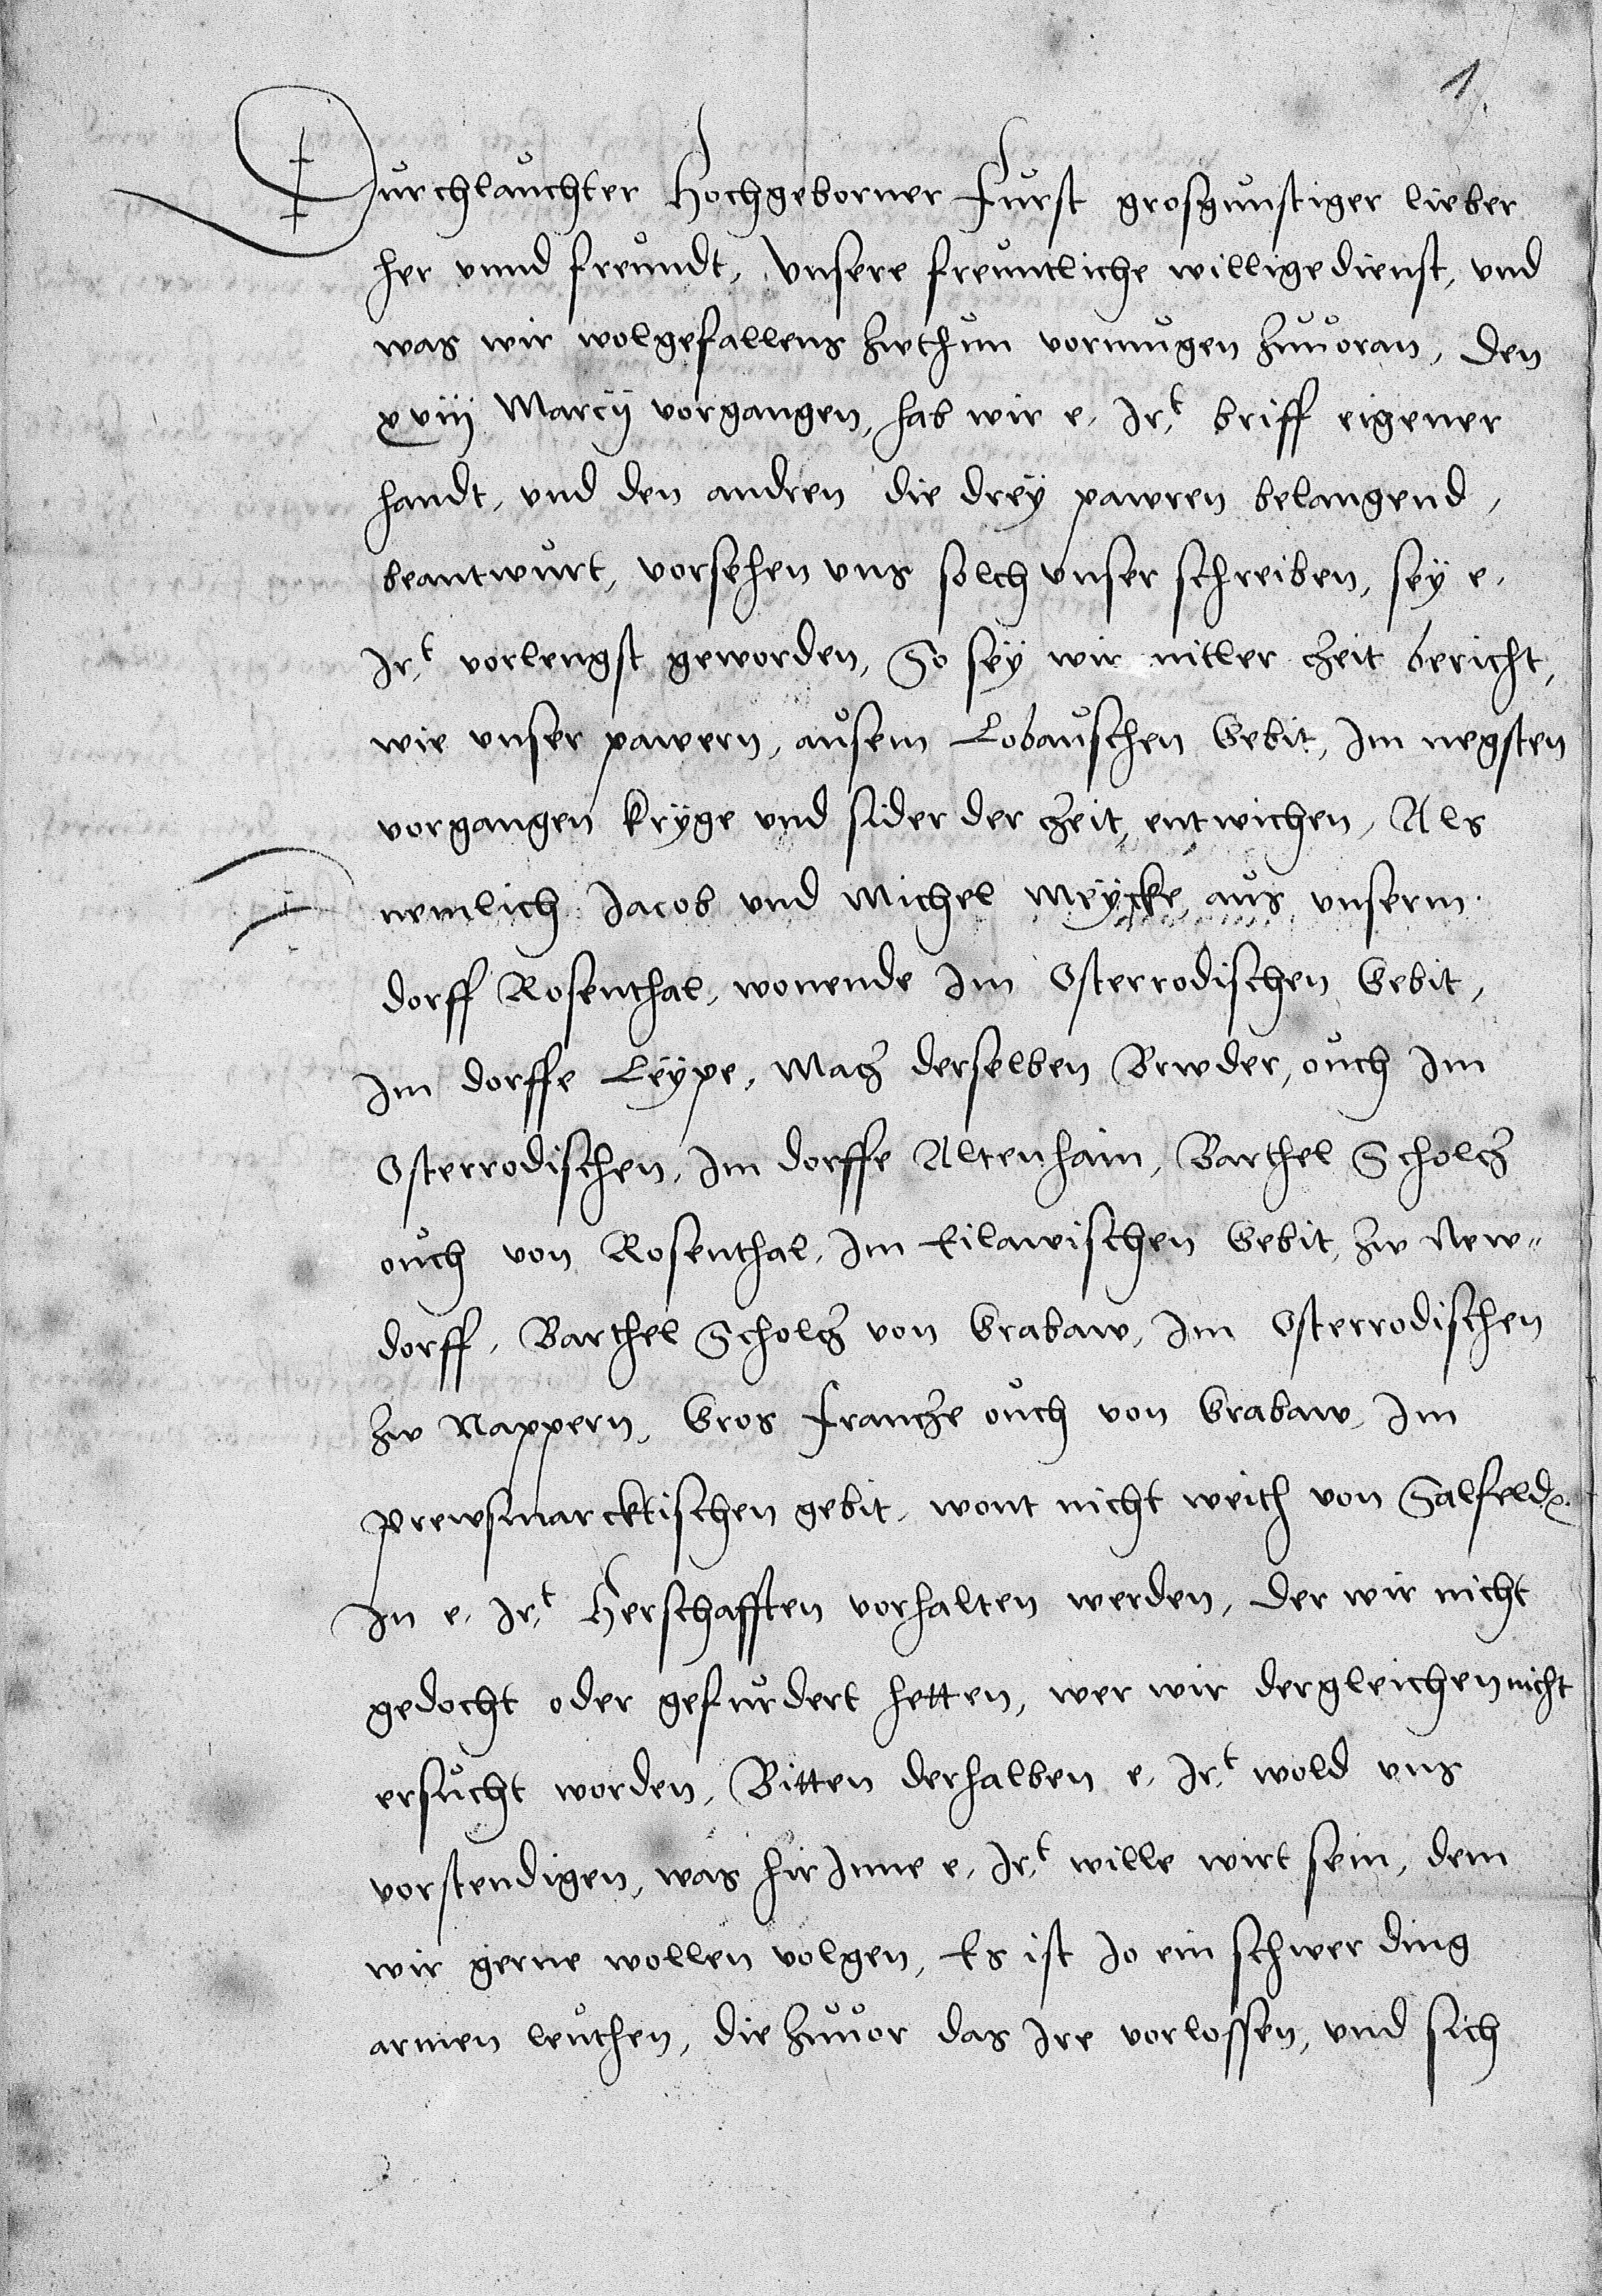 1
Durchlauchter Hochgeborner Furst grosgunstiger lieber
her vnnd freundt, Vnsere freuntliche willige dienst, vnd
was wir wolgefallens zwthun vormugen zuuoran, Den
xviij Marcij vorgangen, hab wir e. Ir.t briff eigener
handt, vnd den andren die dreÿ pawren belangend,
beantwurt, vorsehen vns solch vnser schreiben, seÿ e.
Ir.t vorlengst geworden, So seÿ wir mitler czeit bericht,
wie vnser pawern, ausem Lobauschen Gebit, Im negsten
vorgangen krÿge vnd sider der czeit, entwichen, Als
nemlich Jacob vnd Michel Meÿcke, aus vnserm
dorff Rosenthal, wonende Im Osterrodischen Gebit,
Im dorffe Leÿpe, Macz derselben Brwder, ouch Im
Osterrodischen, Im dorffe Altenhain, Barthel Scholcz
ouch von Rosenthal, Im Eilawischen Gebit, zw New„
dorff, Barthel Scholcz von Grabaw, Im Osterrodischen
zw Nappern, Gros Francze ouch von Grabaw, Im
Prewsmarcktischen gebit, wont nicht weith von Salfeld
In e. Ir.t Herschafften vorhalten werden, Der wir nicht
gedocht oder gefurdert hetten, wer wir dergleichen nicht
ersucht worden, Bitten derhalben e. Ir.t wold vns
vorstendigen, was hir Inne e. Ir.t wille wirt sein, dem
wir gerne wollen volgen, Es ist Jo ein schwer ding
armen leuthen, die zuuor das Ire vorlossen, vnd sich